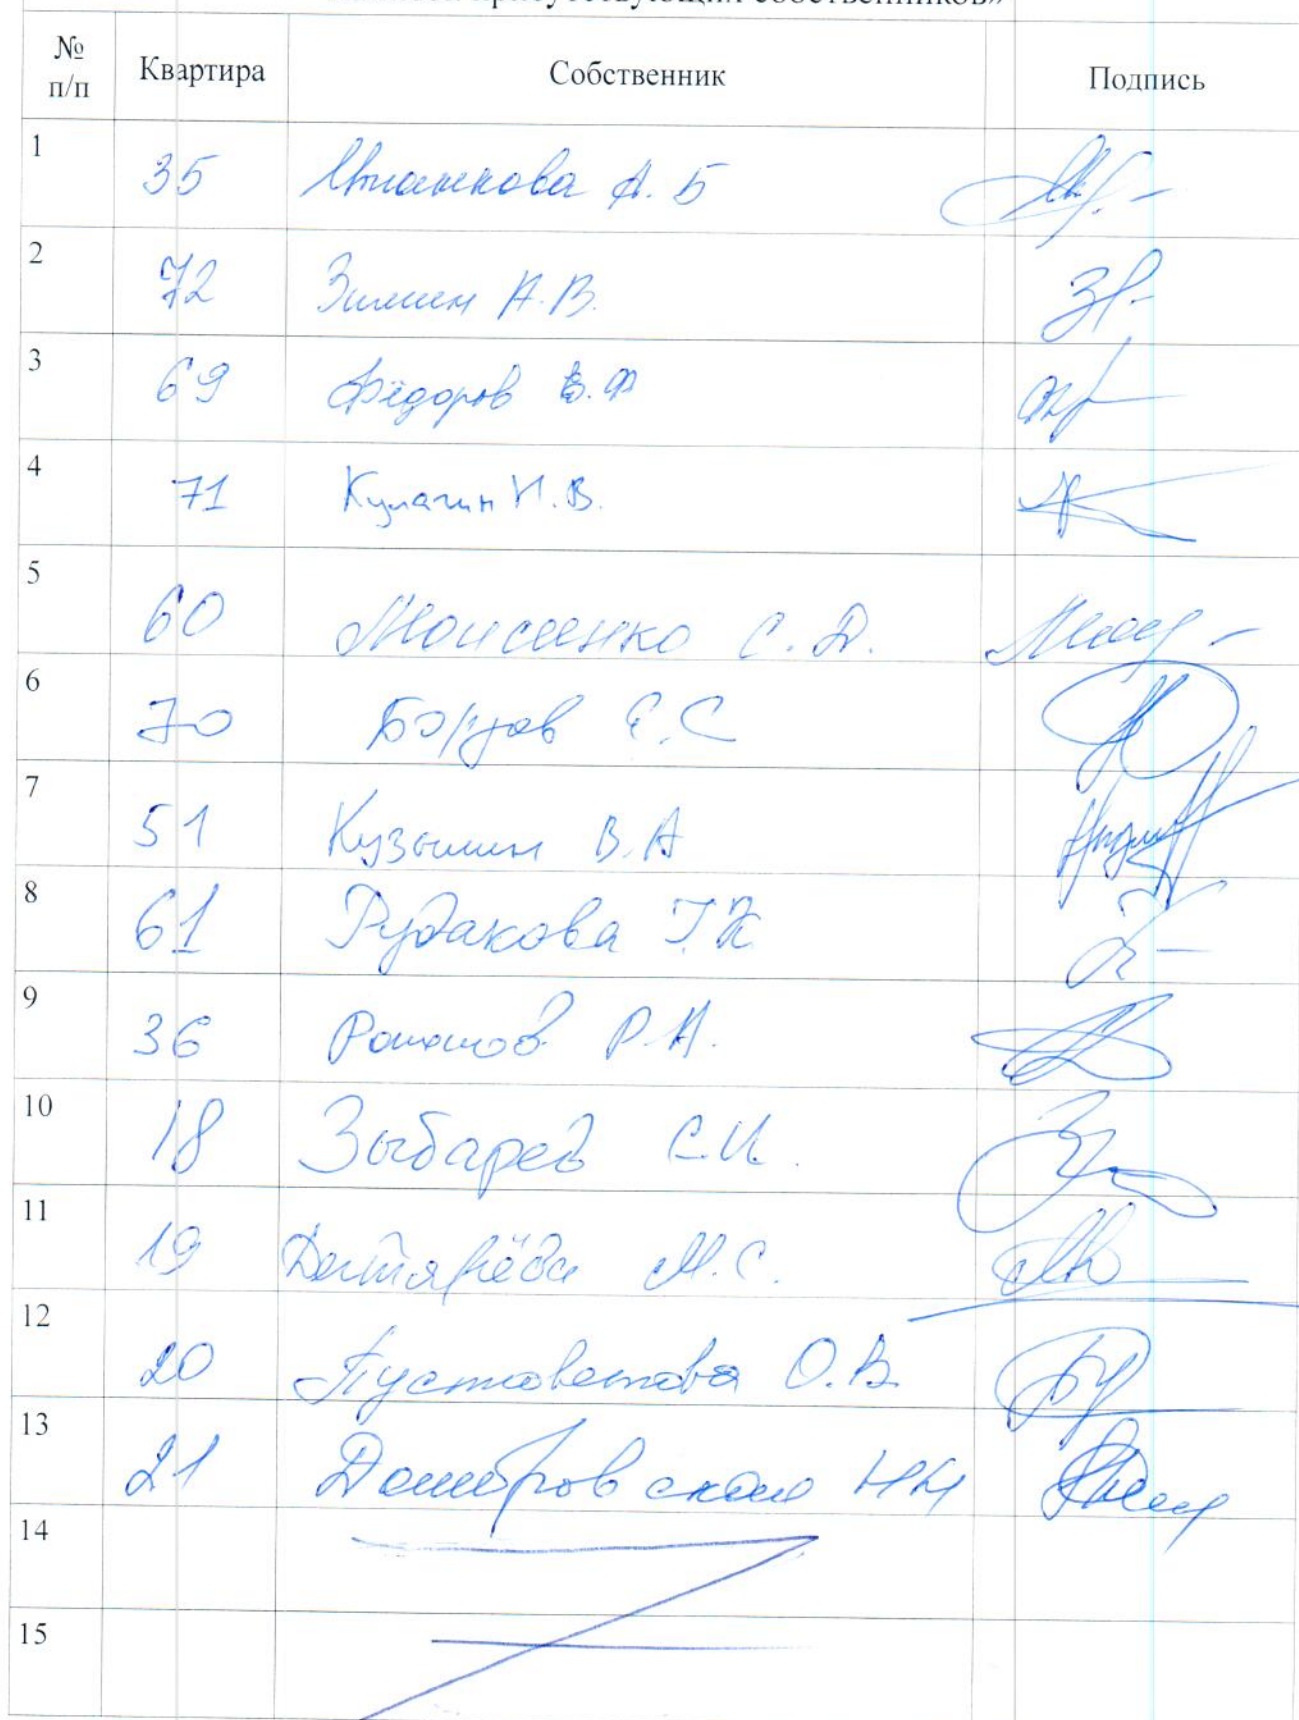 присутствующих собственников»
№ п/п Квартира Собственник Подпись
1 35 А. Б
2 72 Зимин А.В.
3 69 Фёдоров В.Ф
4 71 Кулагин И.В.
5 60 Моисеенко С. Д.
6 70 Борзов Е.С
7 51 Кузьмин В.А
8 61 Рудакова Т.Н
9 36 Романов Р.А.
10 18 Зыбарев С.И.
11 19 Дегтярёва М.С.
12 20 Пустоветова О.В.
13 21 НН
14
15